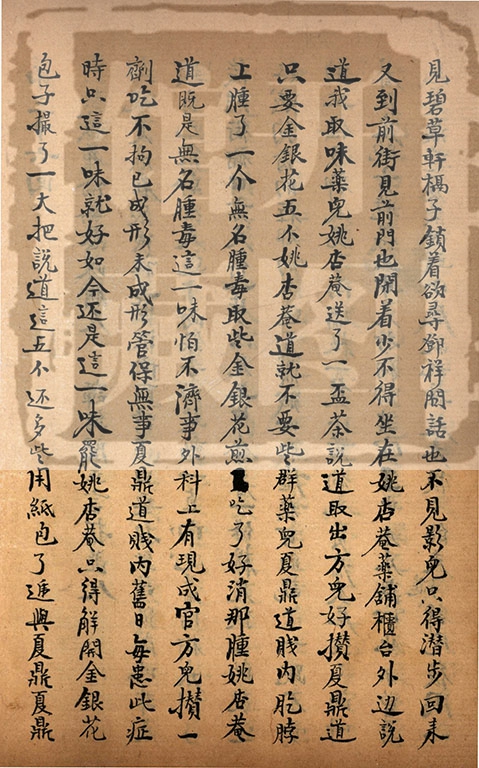 見碧草軒槅子鎖着欲尋鄧祥問話也不見影兒只得潜步回来
又到前街見前門也閉着少不得坐在姚杏菴藥舖櫃台外边說
道我取味藥兒姚杏菴送了一盃茶說道取出方兒好攢夏鼎道
只要金銀花五分姚杏菴道就不要些群藥兒夏鼎道賤内肐脖
上腫了一个無名腫毒取些金銀花煎吃了好消那腫姚杏菴
道既是無名腫毒這一味怕不濟事外科上有現成官方兒攢一
劑吃不拘已成形未成形管保無事夏鼎道賤内舊日每患此症
時只這一味就好如今还是這一味罷姚杏菴只得解開金銀花
包子撮了一大把說道這五分还多些用紙包了遞與夏鼎夏鼎